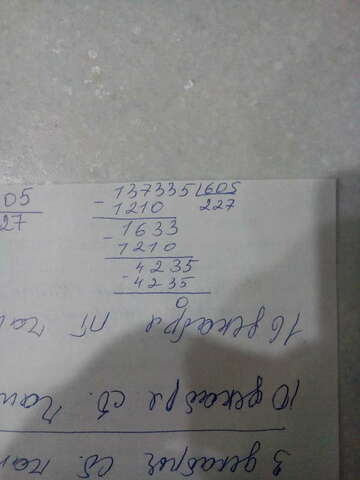 05
27
137335 605
- 1210 227
- 1633
1210
- 4235
4235
0
16 декабря пт
10 декабря сб.
3 декабря сб.